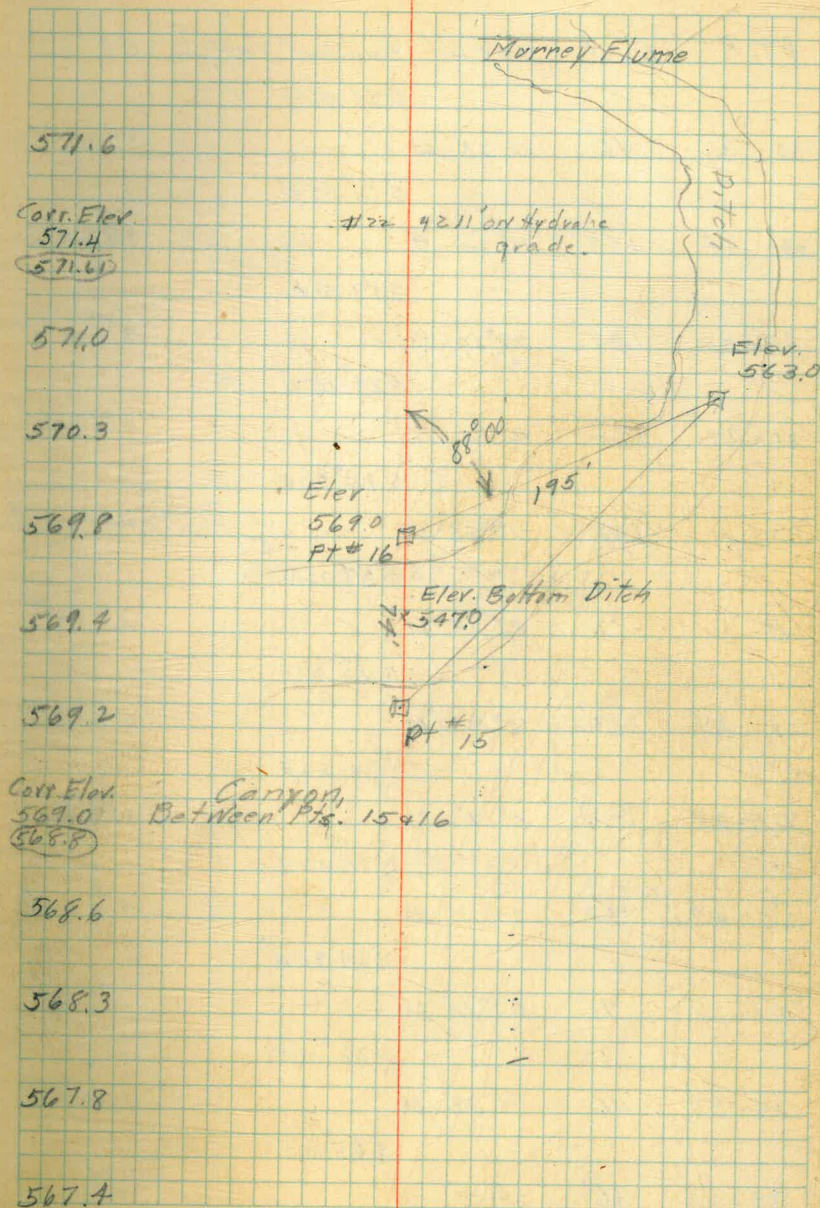 Murrey Flume
571.6
Ditch
Corr. Elev.
571.4
571.61
#22 4211' on Hydralic
grade.
571.0
Elev.
563.0
570.3
88° 00'
195'
Elev
569.0
Pt # 16
569.8
Elev. Bottom Ditch
547.0
74'
569.4
569.2
Pt # 15
Corr. Elev.
569.0
568.8
Canyon,
Between Pts. 15 & 16
568.6
568.3
567.8
567.4